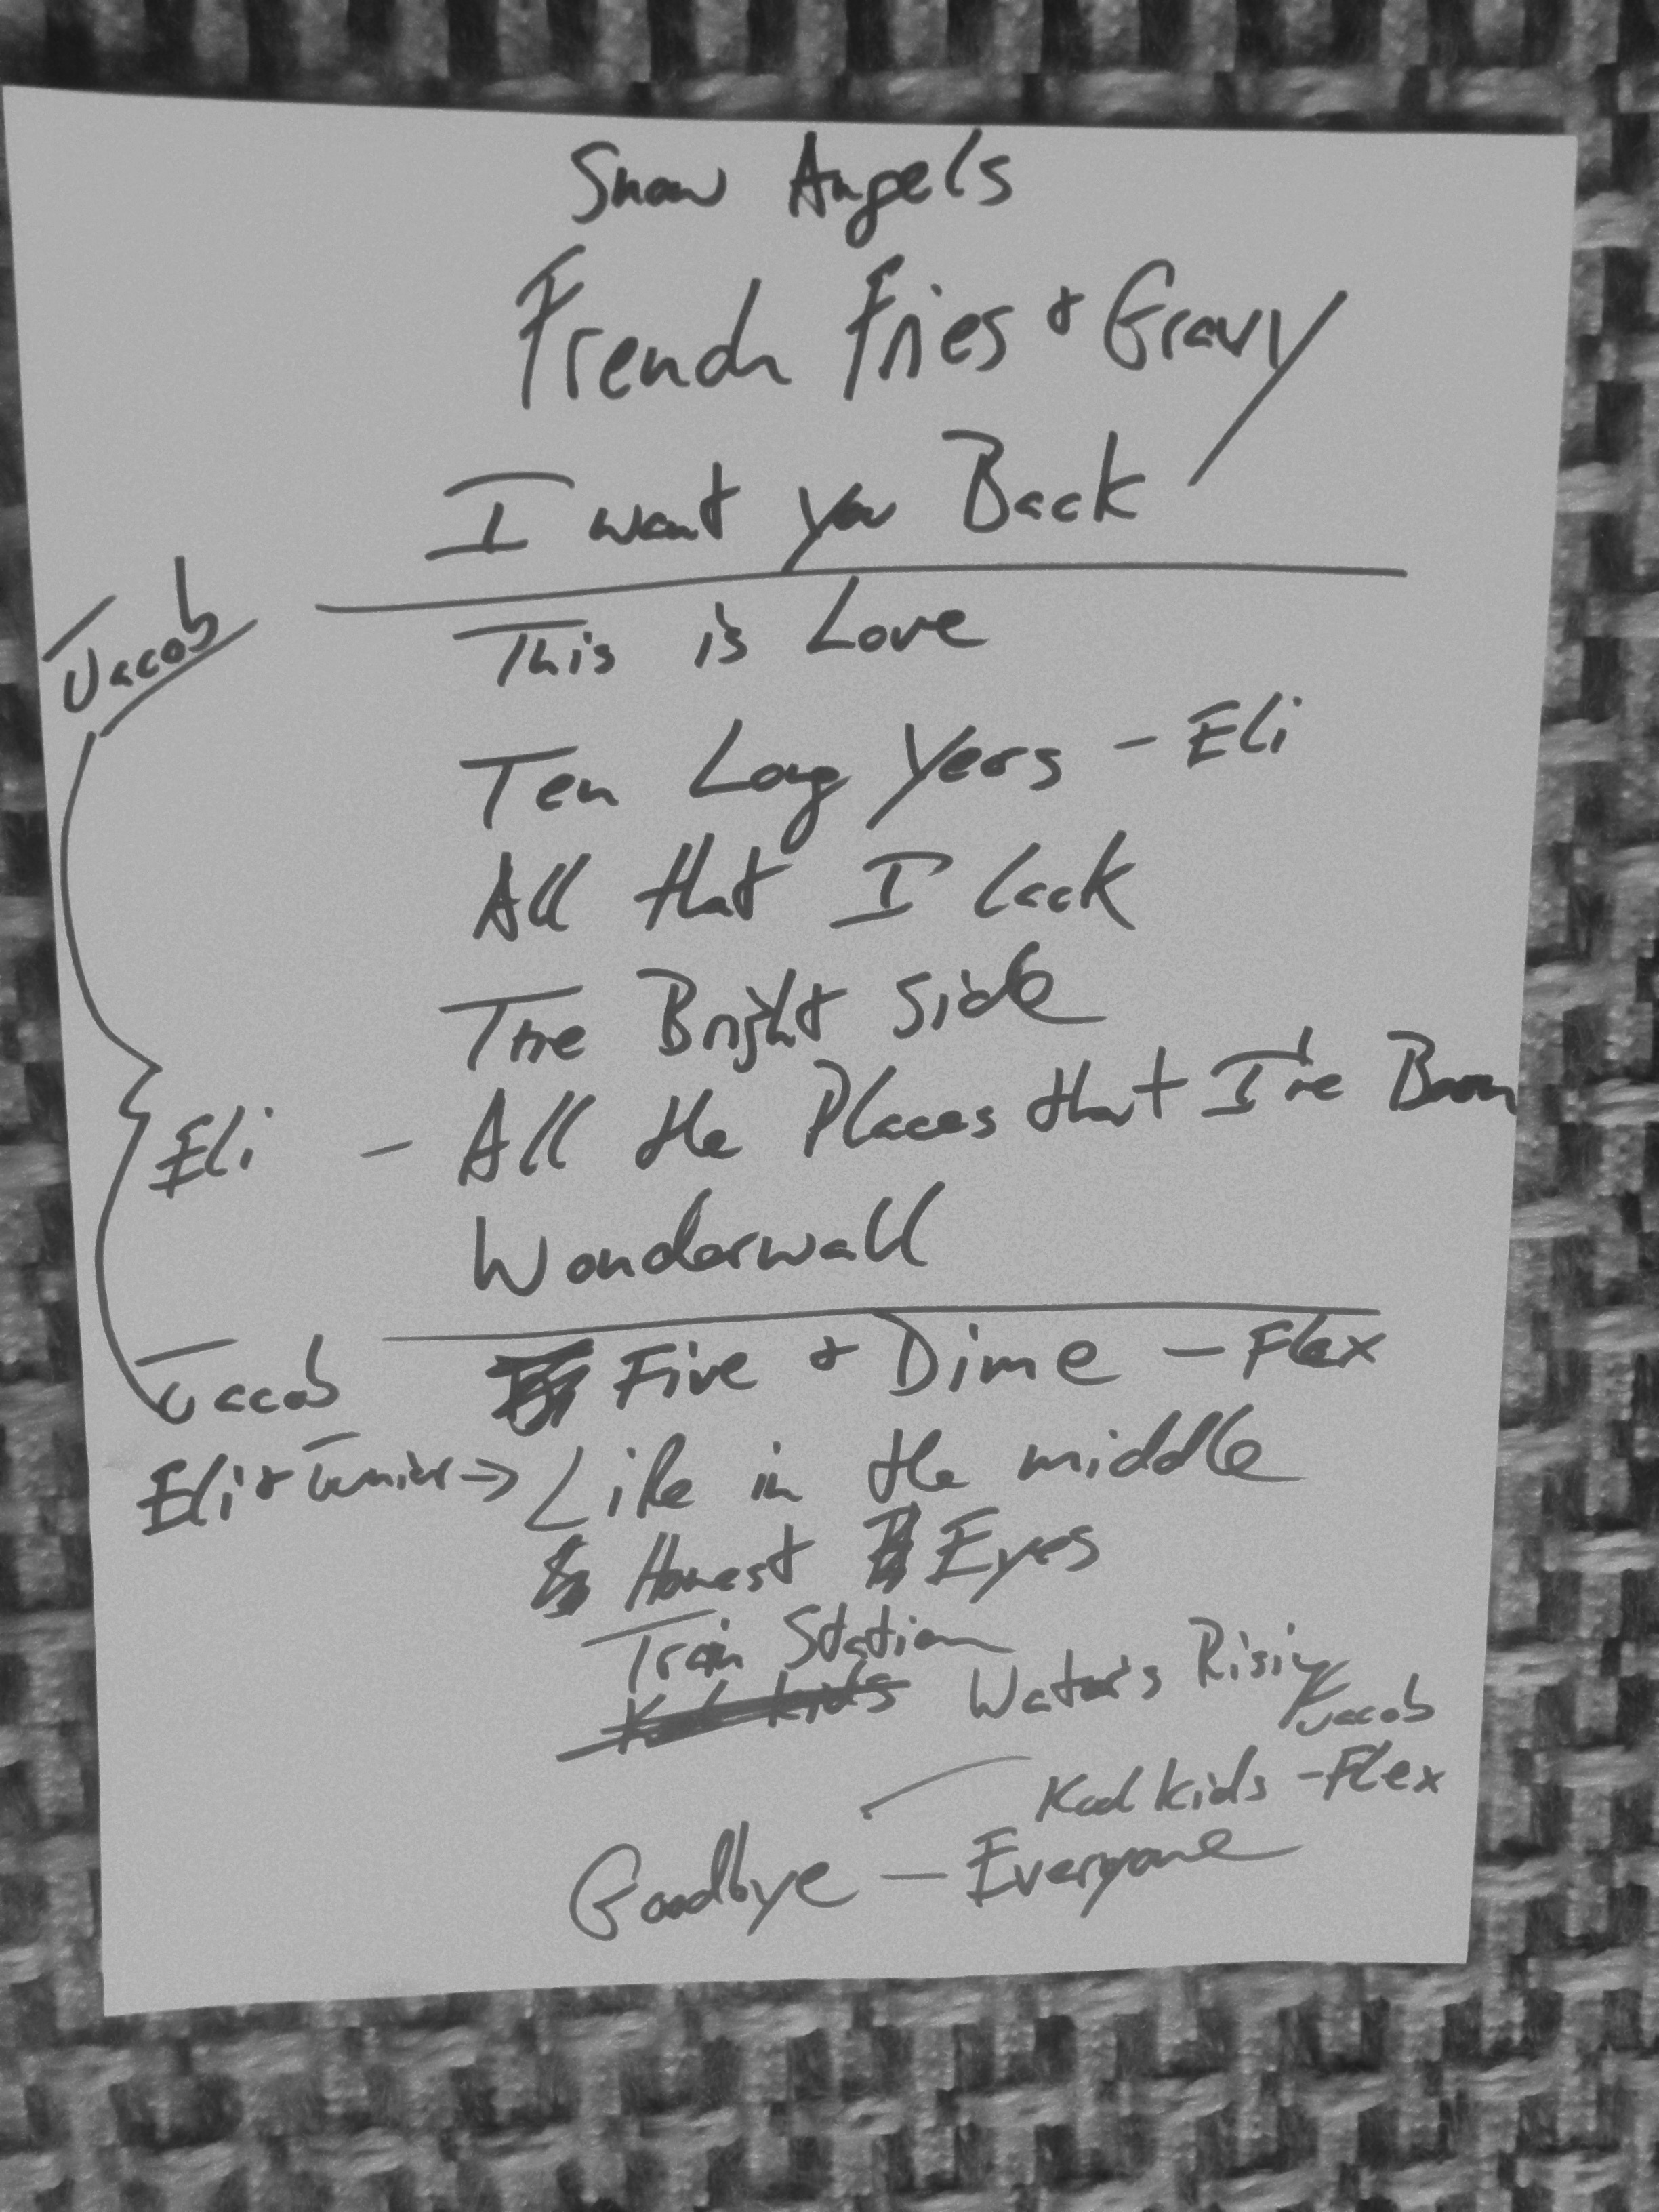 Snow Angels
French Fries & Gravy
I want you Back
Jacob
This is Love
Ten Long Years - Eli
All that I lack
The Bright Side
Eli - All the Places that I've Been
Wonderwall
Jacob Five & Dime - Flex
Eli & Junior → Life in the middle
Honest Eyes
Train Station
Kool kids Water's Rising
Jacob
Kool kids - Flex
Goodbye - Everyone